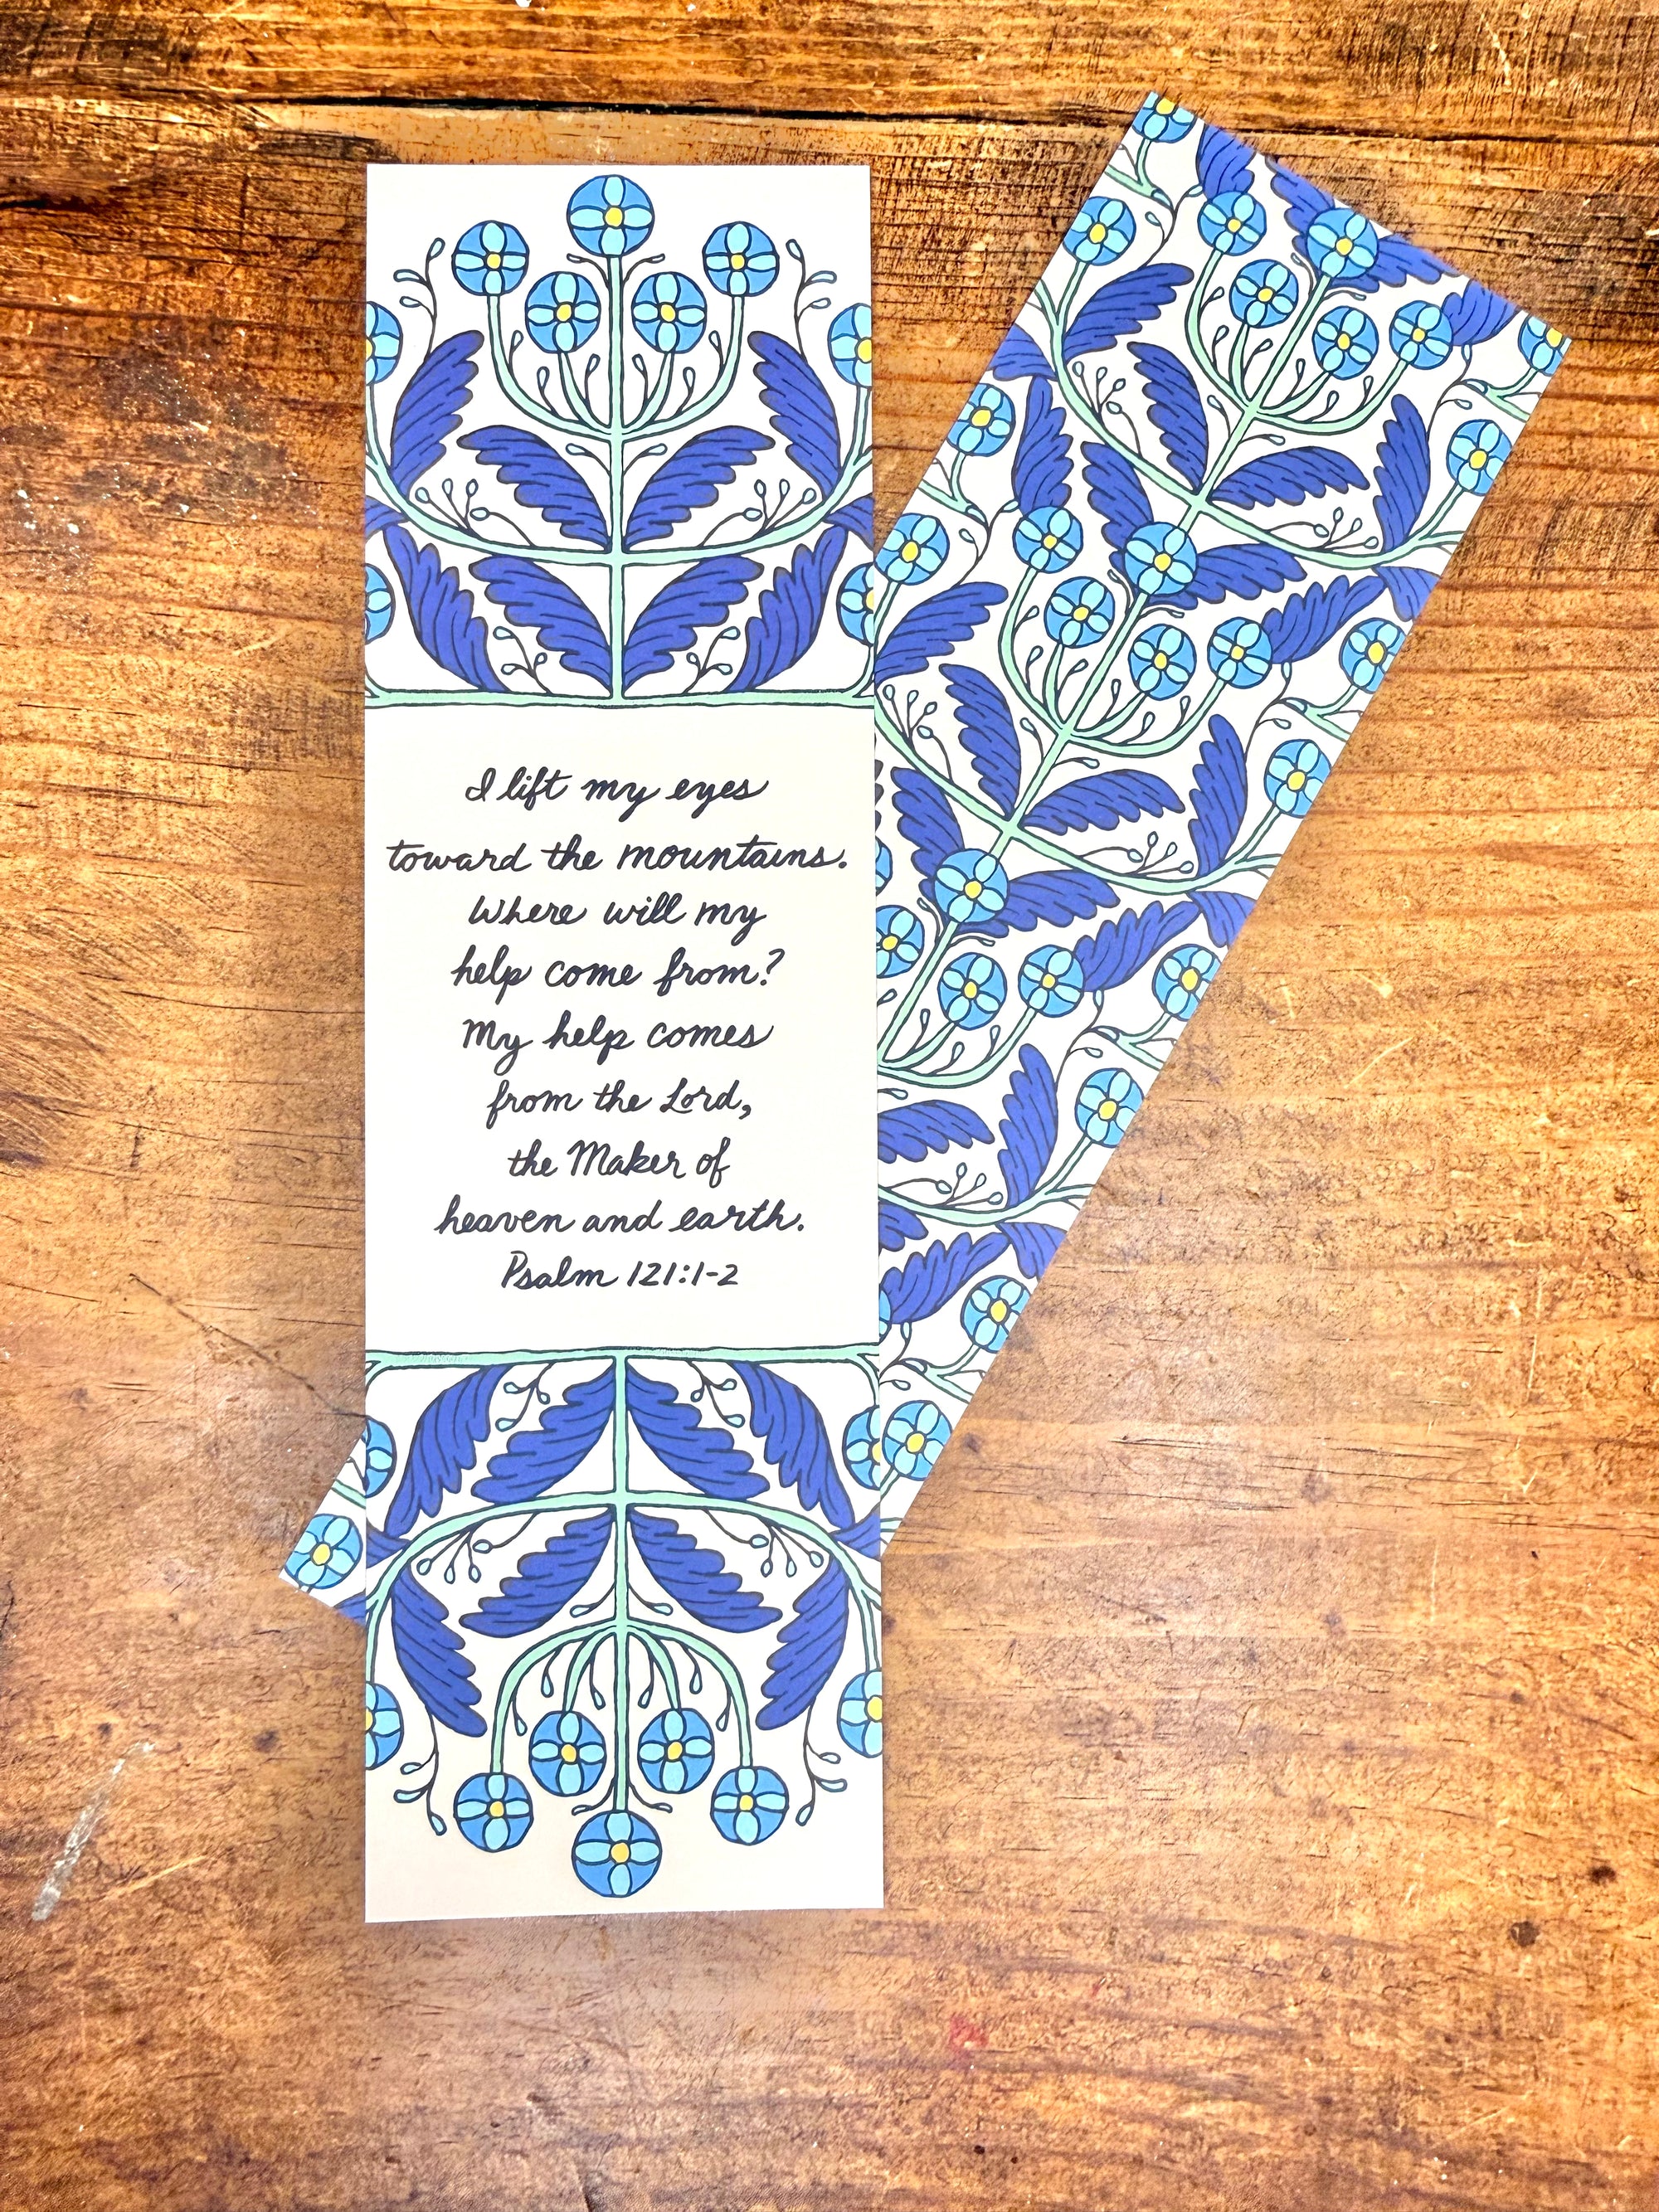 I lift my eyes
toward the mountains.
Where will my
help come from?
My help comes
from the Lord,
the Maker of
heaven and earth.
Psalm 121:1-2